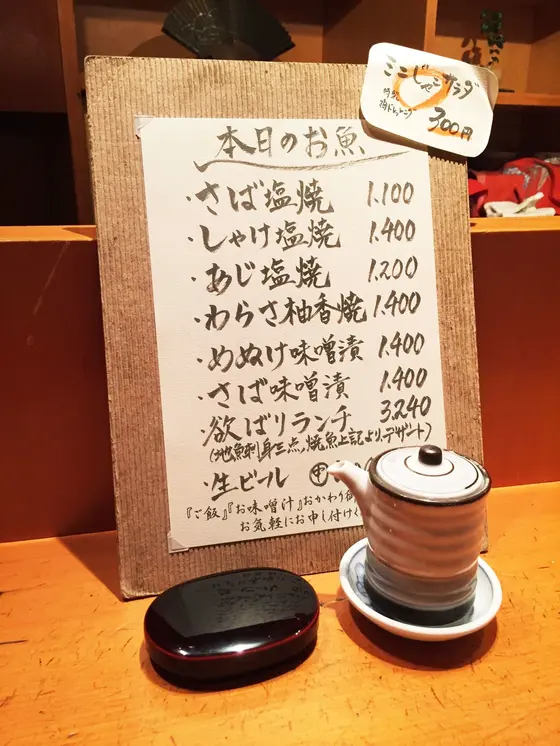 ミニじゃこサラダ
300円
本日のお魚
・さば塩焼 1.100
・しゃけ塩焼 1.400
・あじ塩焼 1.200
・わらさ柚香焼 1.400
・めぬけ味噌漬 1.400
・さば味噌漬 1.400
・欲ばりランチ 3.240
(地魚刺身三点,焼魚上記より,デザート)
・生ビール ㊥
『ご飯』『お味噌汁』おかわり
お気軽にお申し付け